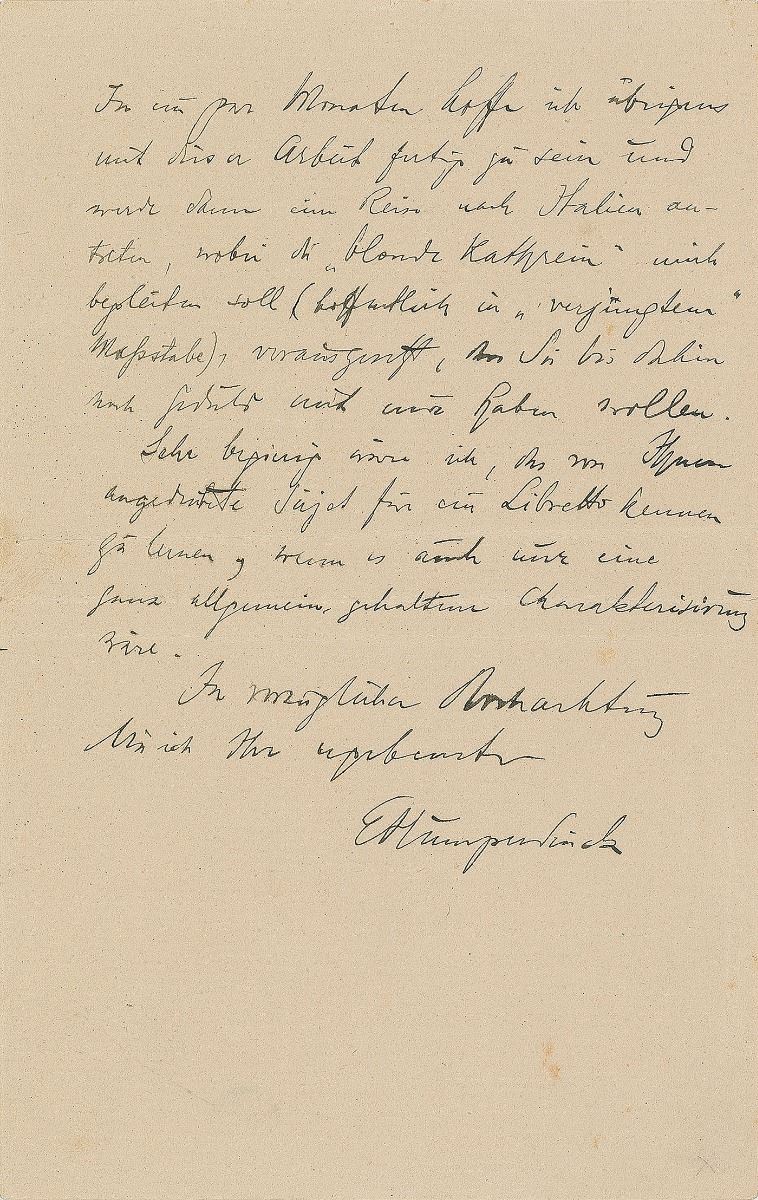 In ein paar Monaten hoffe ich übrigens
mit dieser Arbeit fertig zu sein und
werde dann eine Reise nach Italien an-
treten, wobei die „blonde Kathrein“ mich
begleiten soll (hoffentlich in „verjüngtem“
Maßstabe), vorausgesetzt, dass Sie bis dahin
noch Geduld mit mir haben wollen.
Sehr begierig wäre ich, das von Ihnen
angedeutete Süjet für ein Libretto kennen
zu lernen, wenn es auch nur eine
ganz allgemein gehaltene Charakterisirung
wäre.
In vorzüglicher Hochachtung
bin ich Ihr ergebenster
EHumperdinck